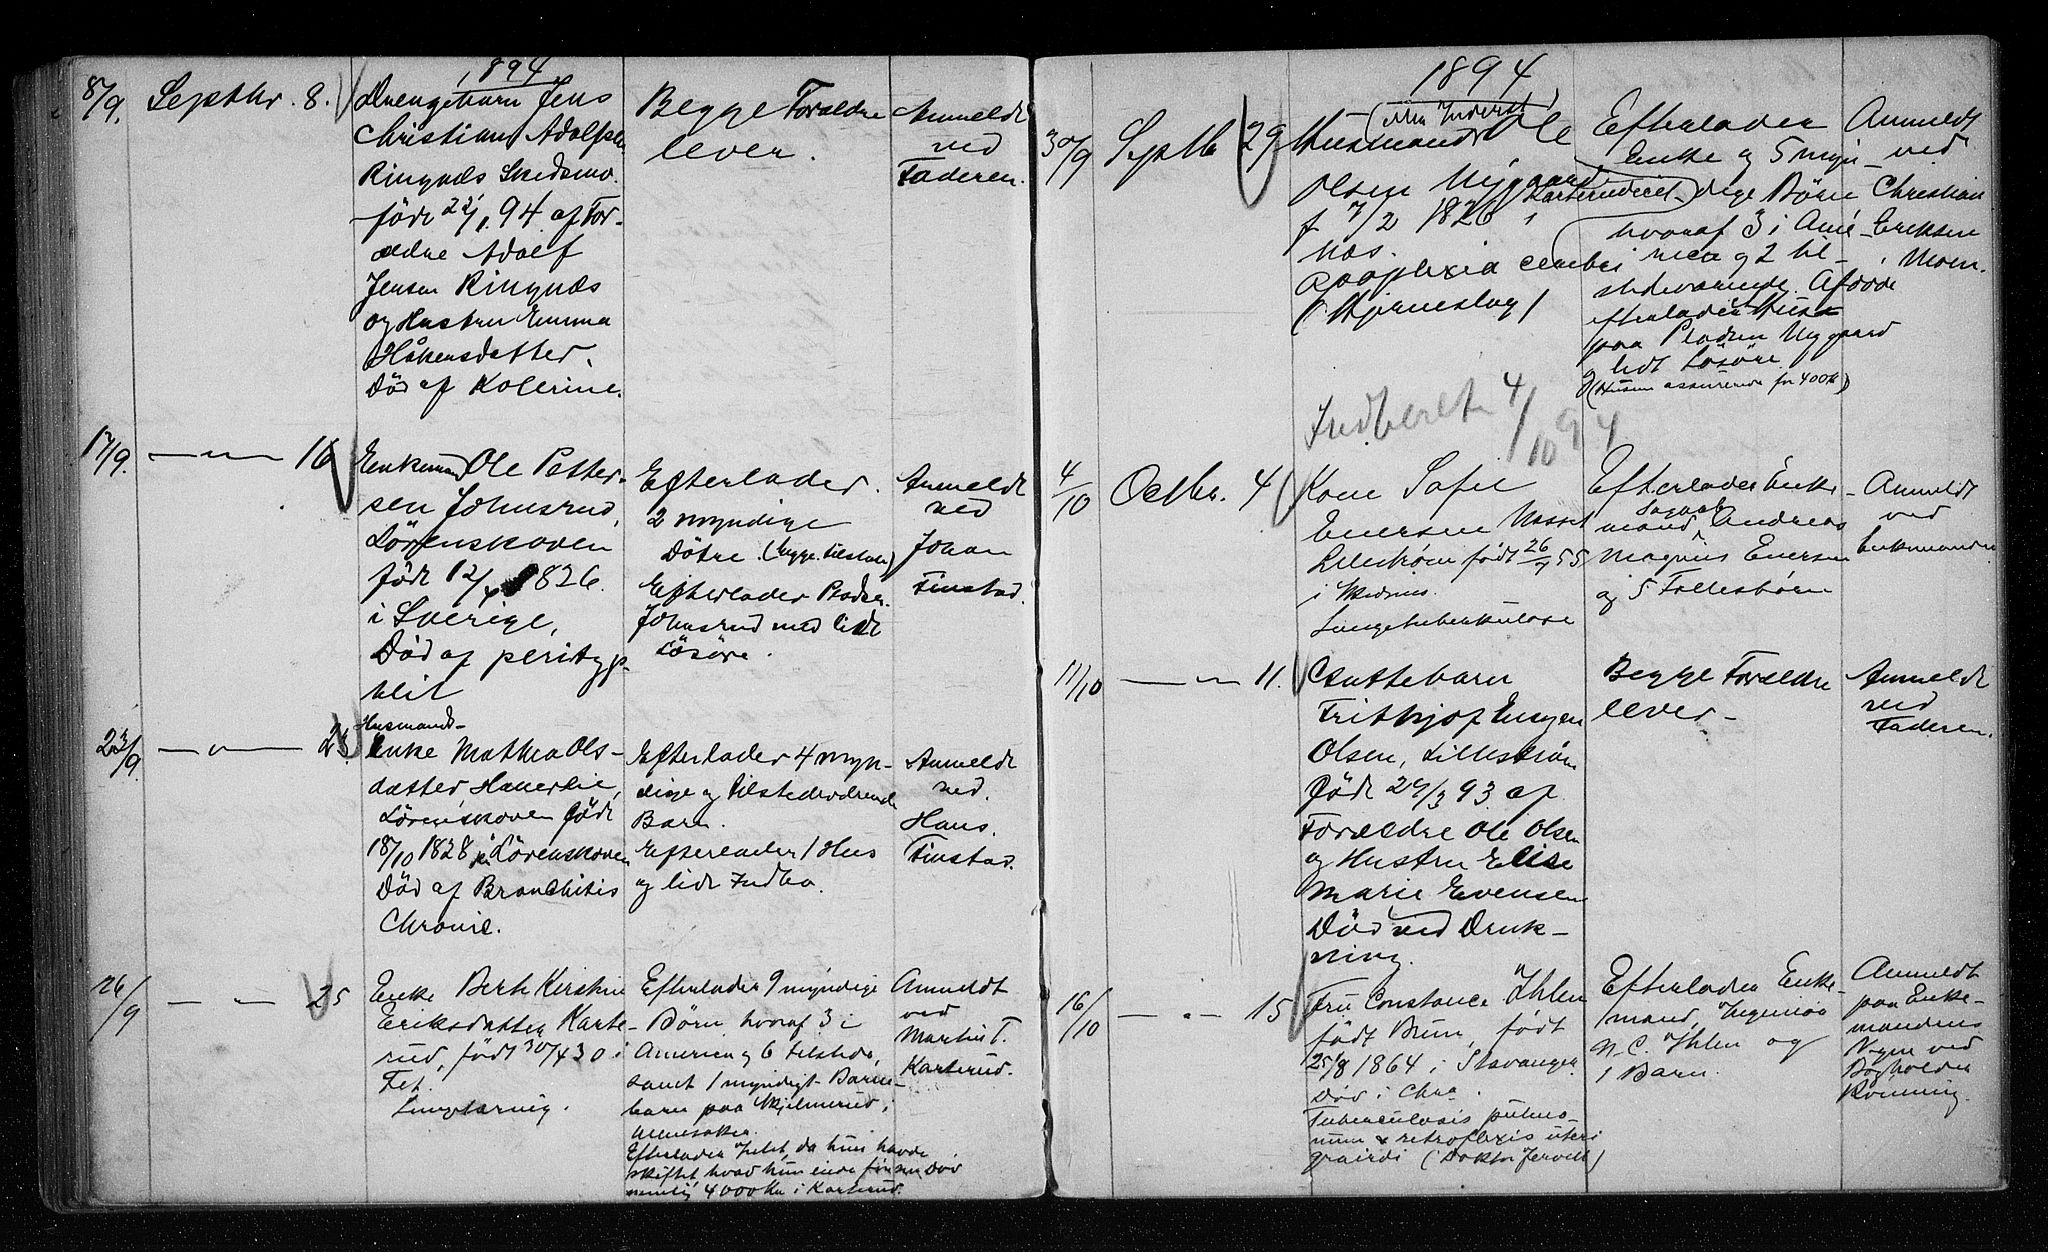 1894
8/9. Septbr. 8.
Drengebarn Jens
Christian Adolfsen
Ringnæs Skedsmo.
født 22/1 94 af For-
ældre Adolf
Jensen Ringnæs
og Hustru Emma
Håkensdatter.
Død af Kolerine.
Begge Forældre
lever.
Anmeldt
ved
Faderen.
17/9. — 〃 — 16
Enkemand Ole Petter-
sen Johnsrud,
Lørenskoven
født 12/4 1826
i Sverige,
Død af perityp-
hlit
Efterlader
2 myndige
Døtre. (begge tilstede)
Efterlader Pladsen
Johnsrud med lidt
Løsøre.
Anmeldt
ved
Johan
Finstad.
23/9. — 〃 — 23.
Husmands-
Enke Mathea Ols-
datter Hanerlie,
Lørenskoven født
18/10 1828 på Lørenskoven
Død af Bronchitis
Chronic.
Efterlader 4 myn-
dige og tilstedeværende
Barn.
Efterlader 1 Hus
og lidt Indbo.
Anmeldt
ved.
Hans.
Finstad.
26/9 — 〃 — 25
Enke Berte Kirstine
Eriksdatter Karte-
rud, født 30/4 30 i
Fet.
Lungetæring.
Efterlader 9 myndige
Børn, hvoraf 3 i
Amerika og 6 tilstede,
samt 1 myndigt Barne-
barn paa Skjelmerud,
Ullensaker.
Efterlader Intet, da hun havde
skiftet hvad hun eiede før sin Død
nemlig 4000 Kr i Karterud.
Anmeldt
ved
Martin T.
Karterud.
1894
30/9 Septb 29
(eller Inderst)
Husmand Ole
Olsen Nygaard
Karterudeiet
f 7/2 1826,
Næs.
Apoplexia cerebri
(Hjerneslag)
Efterlader
Enke og 5 myn-
dige Børn
hvoraf 3 i Ame-
rica og 2 til-
stedeværende. Afdøde
efterlader Hus
paa Pladsen Nygaard
lidt Løsøre.
(Husene assurerede for 400 Kr)
Anmeldt
ved
Christian
Eriksen
Moen.
Indberet 4/10 94
4/10 Octbr. 4
Kone Sofie
Enersen Nasset
Lillestrøm født 26/7 55
i Skedsmo.
Lungetuberkulose
Efterlader Enke-
mand, Sagarb. Andreas
Magnus Enersen
og 5 Fællesbørn
Anmeldt
ved
Enkemanden
11/10 — 〃 — 11.
Guttebarn
Frithjof Eugen
Olsen, Lillestrøm
født 29/3 93 af
Forældre Ole Olsen
og Hustru Elise
Marie Evensen
Død ved Druk-
ning.
Begge Forældre
lever.
Anmeldt
ved
Faderen.
16/10 — 〃 — 15
Fru Constance Ihlen
født Brun, født
25/8 1864 i Stavanger
Død i Chra.
Tuberculosis pulmo-
num & retroflexis uteri
gravidi (Doktor Jervell)
Efterlader Enke-
mand, Ingeniør
N. C. Ihlen og
1 Barn.
Anmeldt
paa Enke-
mandens
Vegne ved
Bogholder
Rønning.